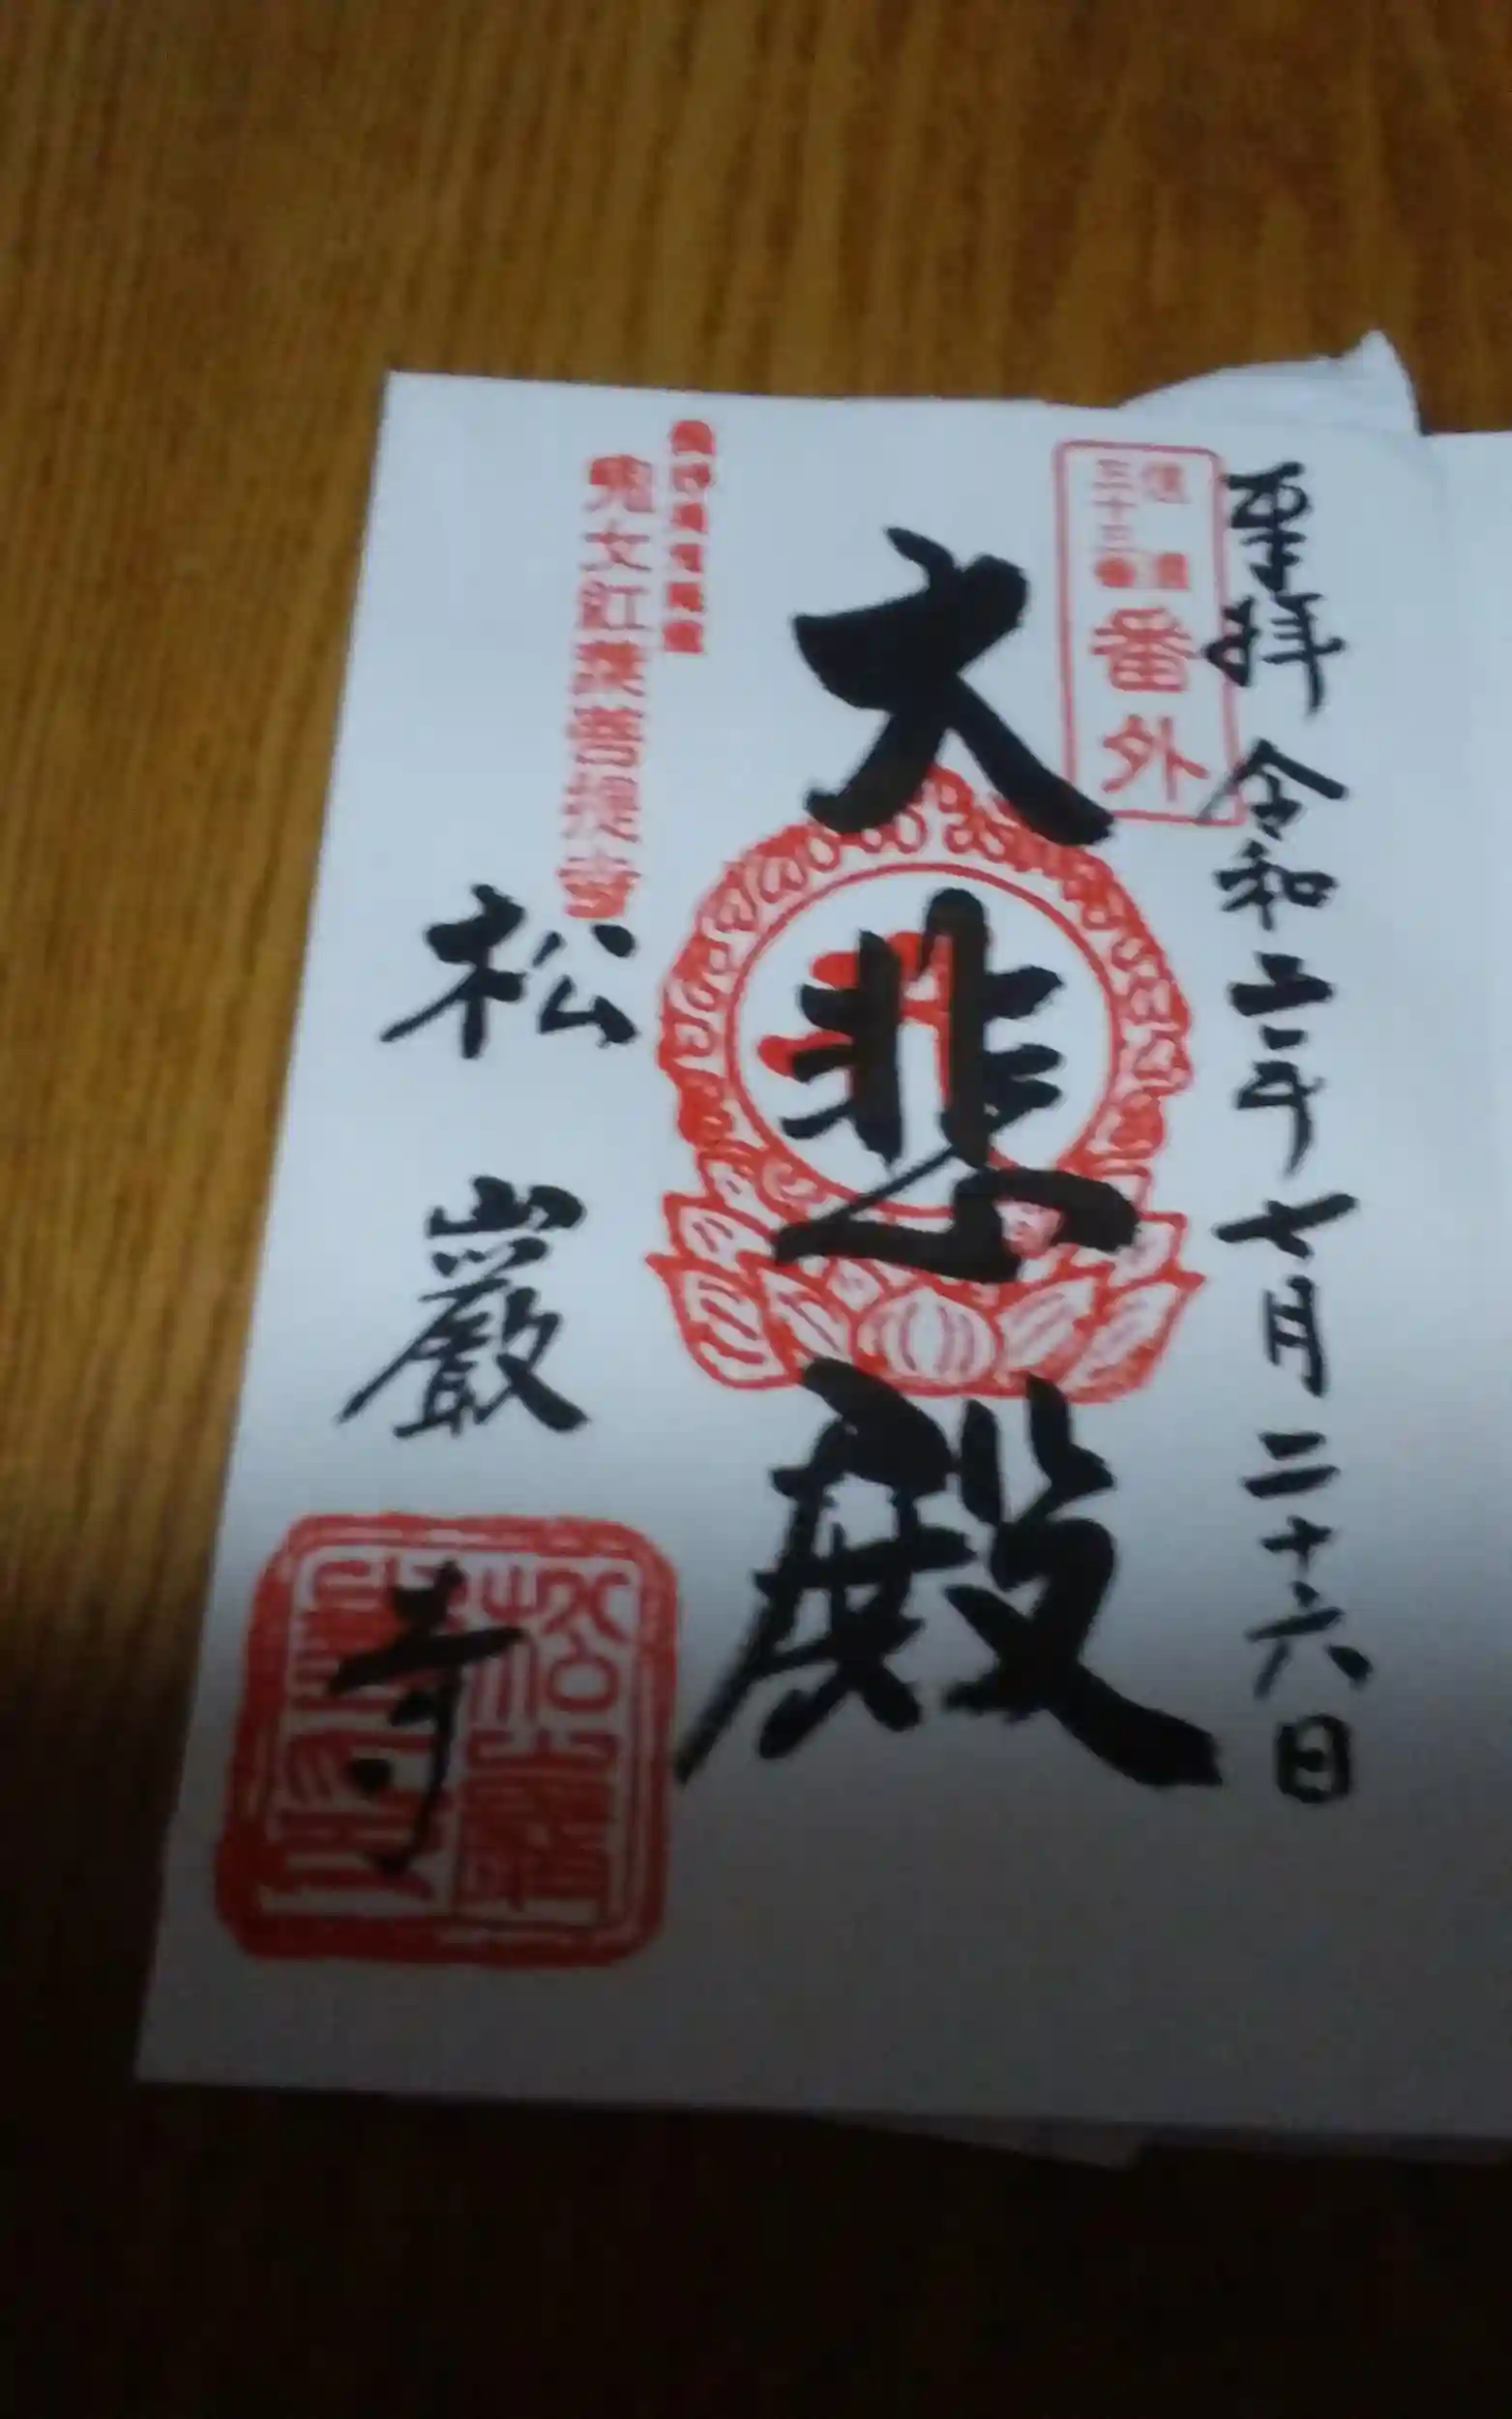 重拝 令和二年七月二十六日
信濃
三十三番
番外
大悲殿
鬼女紅葉菩提寺
松巖寺